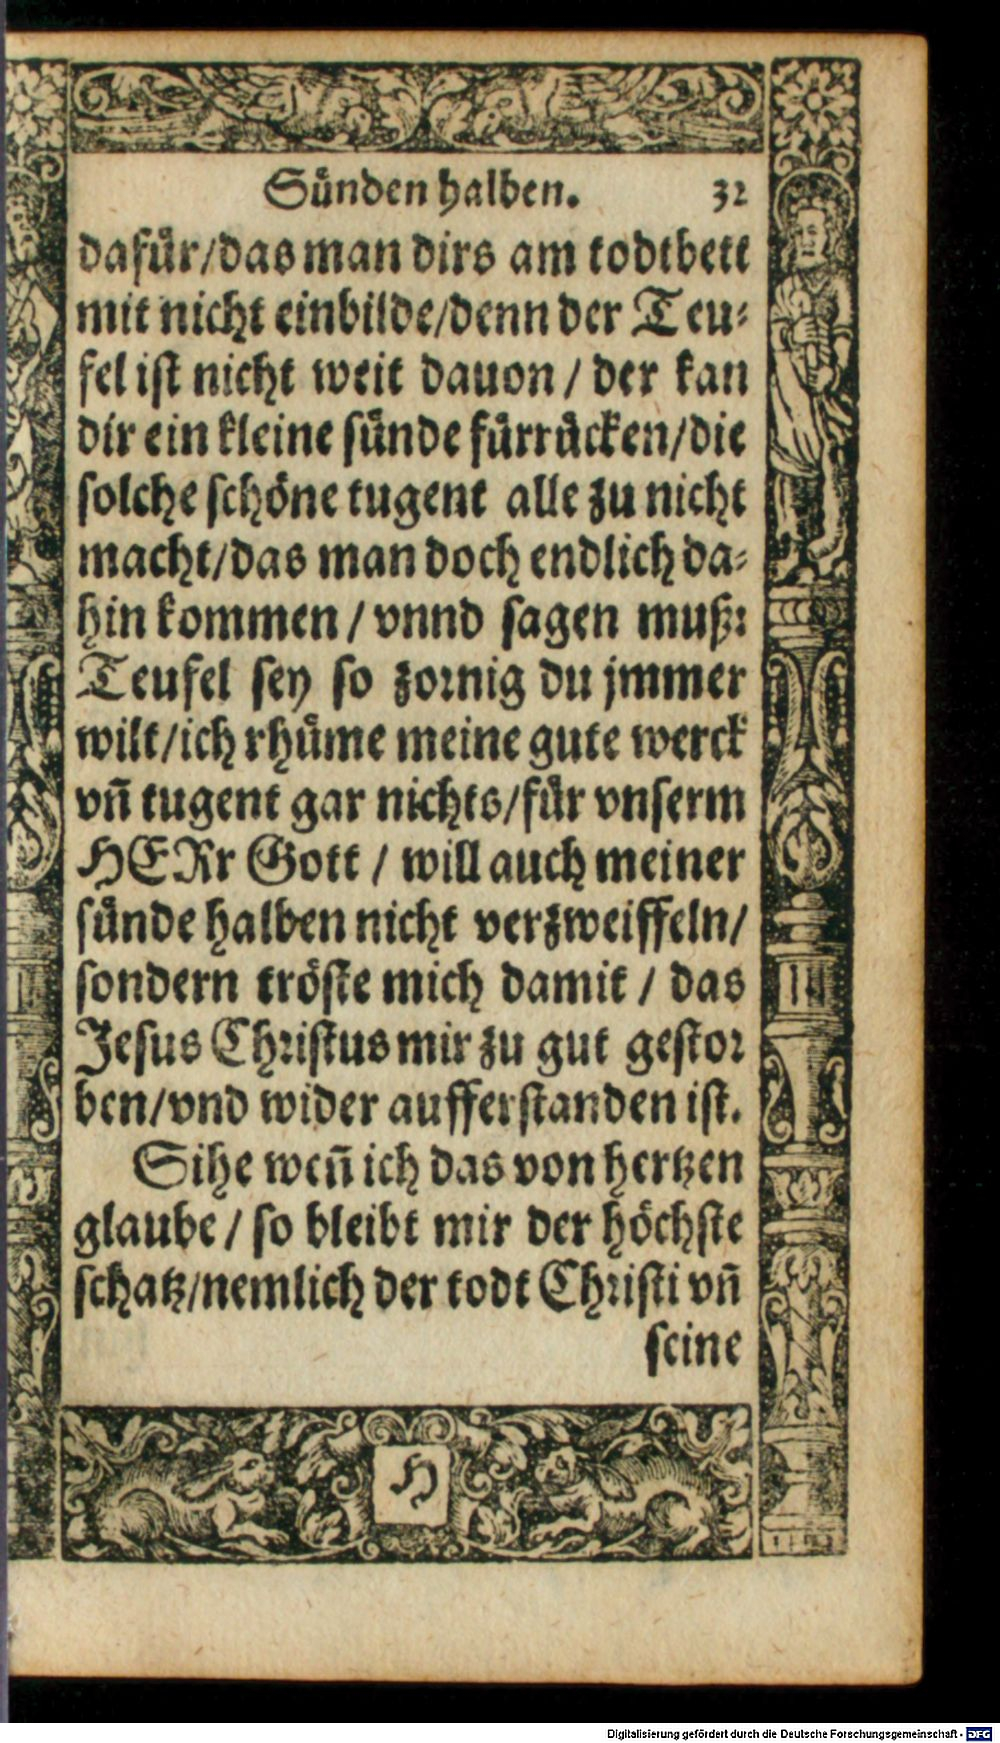 Sünden halben. 32
dafür/das man dirs am todtbett
mit nicht einbilde/denn der Teu⸗
fel ist nicht weit dauon / der kan
dir ein kleine sünde fürrücken/die
solche schöne tugent alle zu nicht
macht/das man doch endlich da⸗
hin kommen / vnnd sagen muß:
Teufel sey so zornig du jmmer
wilt/ich rhüme meine gute werck
vñ tugent gar nichts/für vnserm
HERr Gott / will auch meiner
sünde halben nicht verzweiffeln/
sondern tröste mich damit / das
Jesus Christus mir zu gut gestor
ben/vnd wider aufferstanden ist.
Sihe weñ ich das von hertzen
glaube / so bleibt mir der höchste
schatz/nemlich der todt Christi vñ
seine
H
Digitalisierung gefördert durch die Deutsche Forschungsgemeinschaft - DFG